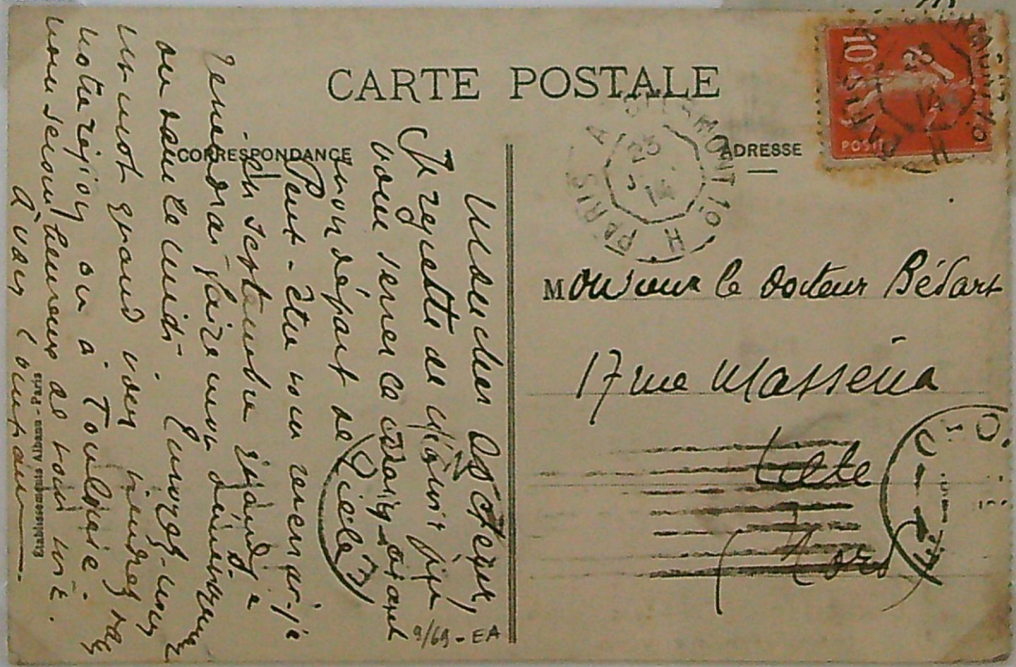 CARTE POSTALE
CORRESPONDANCE
ADRESSE
Mon cher Docteur,
Je regrette de n'avoir pu
vous serrer la main avant
mon départ de Lille
Peut-être vous reverrai-je
en septembre quand je
reviendrai faire mon
ou dans le midi. Envoyez-nous
un mot quand vous viendrez dans
notre région ou à Toulouse.
nous serons heureux de vous voir.
À vous
Etablissements Albana - Paris
9/69 - EA
Monsieur le docteur Bédart
17 rue Masséna
Lille
(Nord)
PARIS A
23
14
10
POSTE